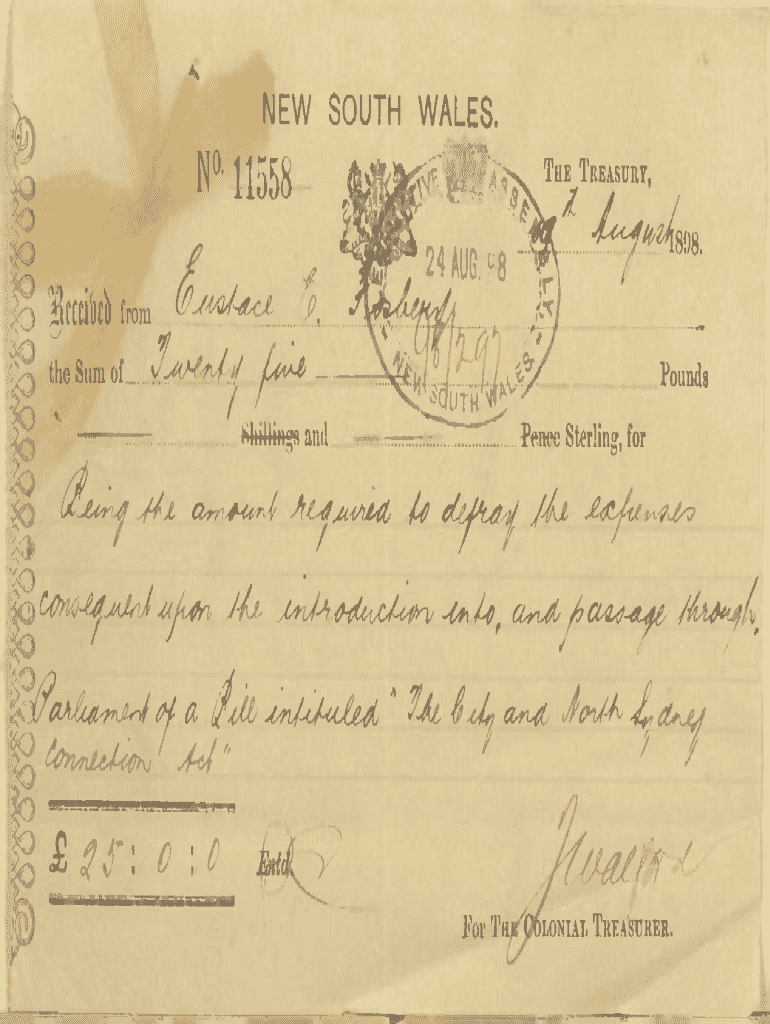 NEW SOUTH WALES.
No. 11558
THE TREASURY,
August 1898.
LEGISLATIVE ASSEMBLY
24 AUG. 98
98/297
NEW SOUTH WALES
Received from Eustace C.
the Sum of Twenty five Pounds
Shillings and Pence Sterling, for
Being the amount required to defray the expenses
consequent upon the introduction into, and passage through,
Parliament of a Bill intituled "The City and North Sydney
Connection Act"
£ 25 : 0 : 0 Entd.
For THE COLONIAL TREASURER.